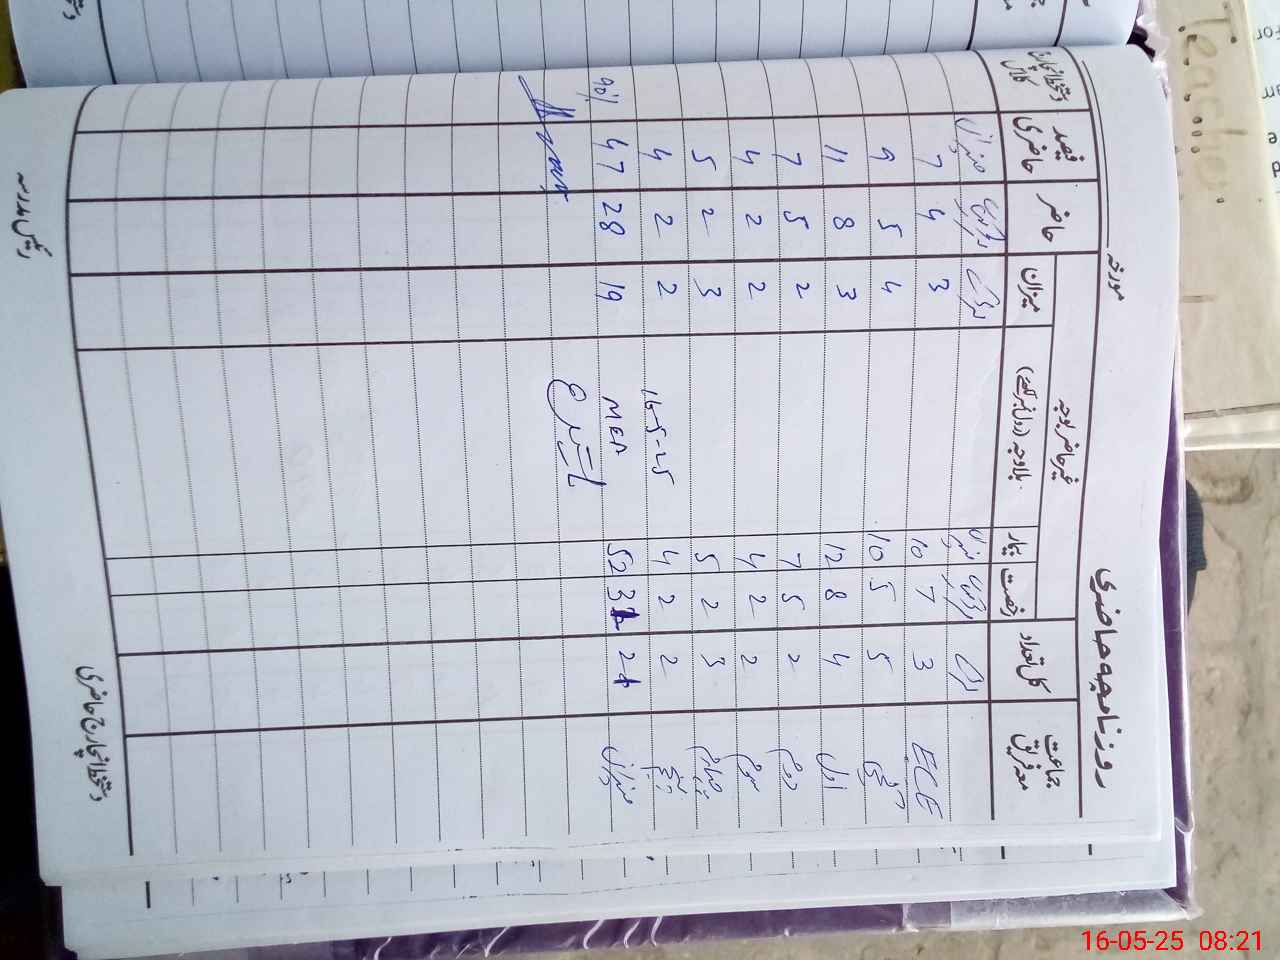 روزنامچہ حاضری مورخہ
جماعت معہ فریق کل تعداد غیر حاضر بوجہ حاضر فیصد حاضری دستخط انچارج کلاس
رخصت بیمار بلاوجہ (رول نمبر لکھئے) میزان
لڑکے لڑکیاں میزان لڑکے لڑکیاں میزان
ECE 3 7 10 3 4 7
کچی 5 5 10 4 5 9
اول 4 8 12 3 8 11
دوم 2 5 7 2 5 7
سوم 2 2 4 2 2 4
چہارم 3 2 5 3 2 5
پنجم 2 2 4 16-5-25 2 2 4
میزان 21 31 52 19 28 47 90%
دستخط انچارج حاضری رئیس مدرسہ
Teacher
16-05-25 08:21